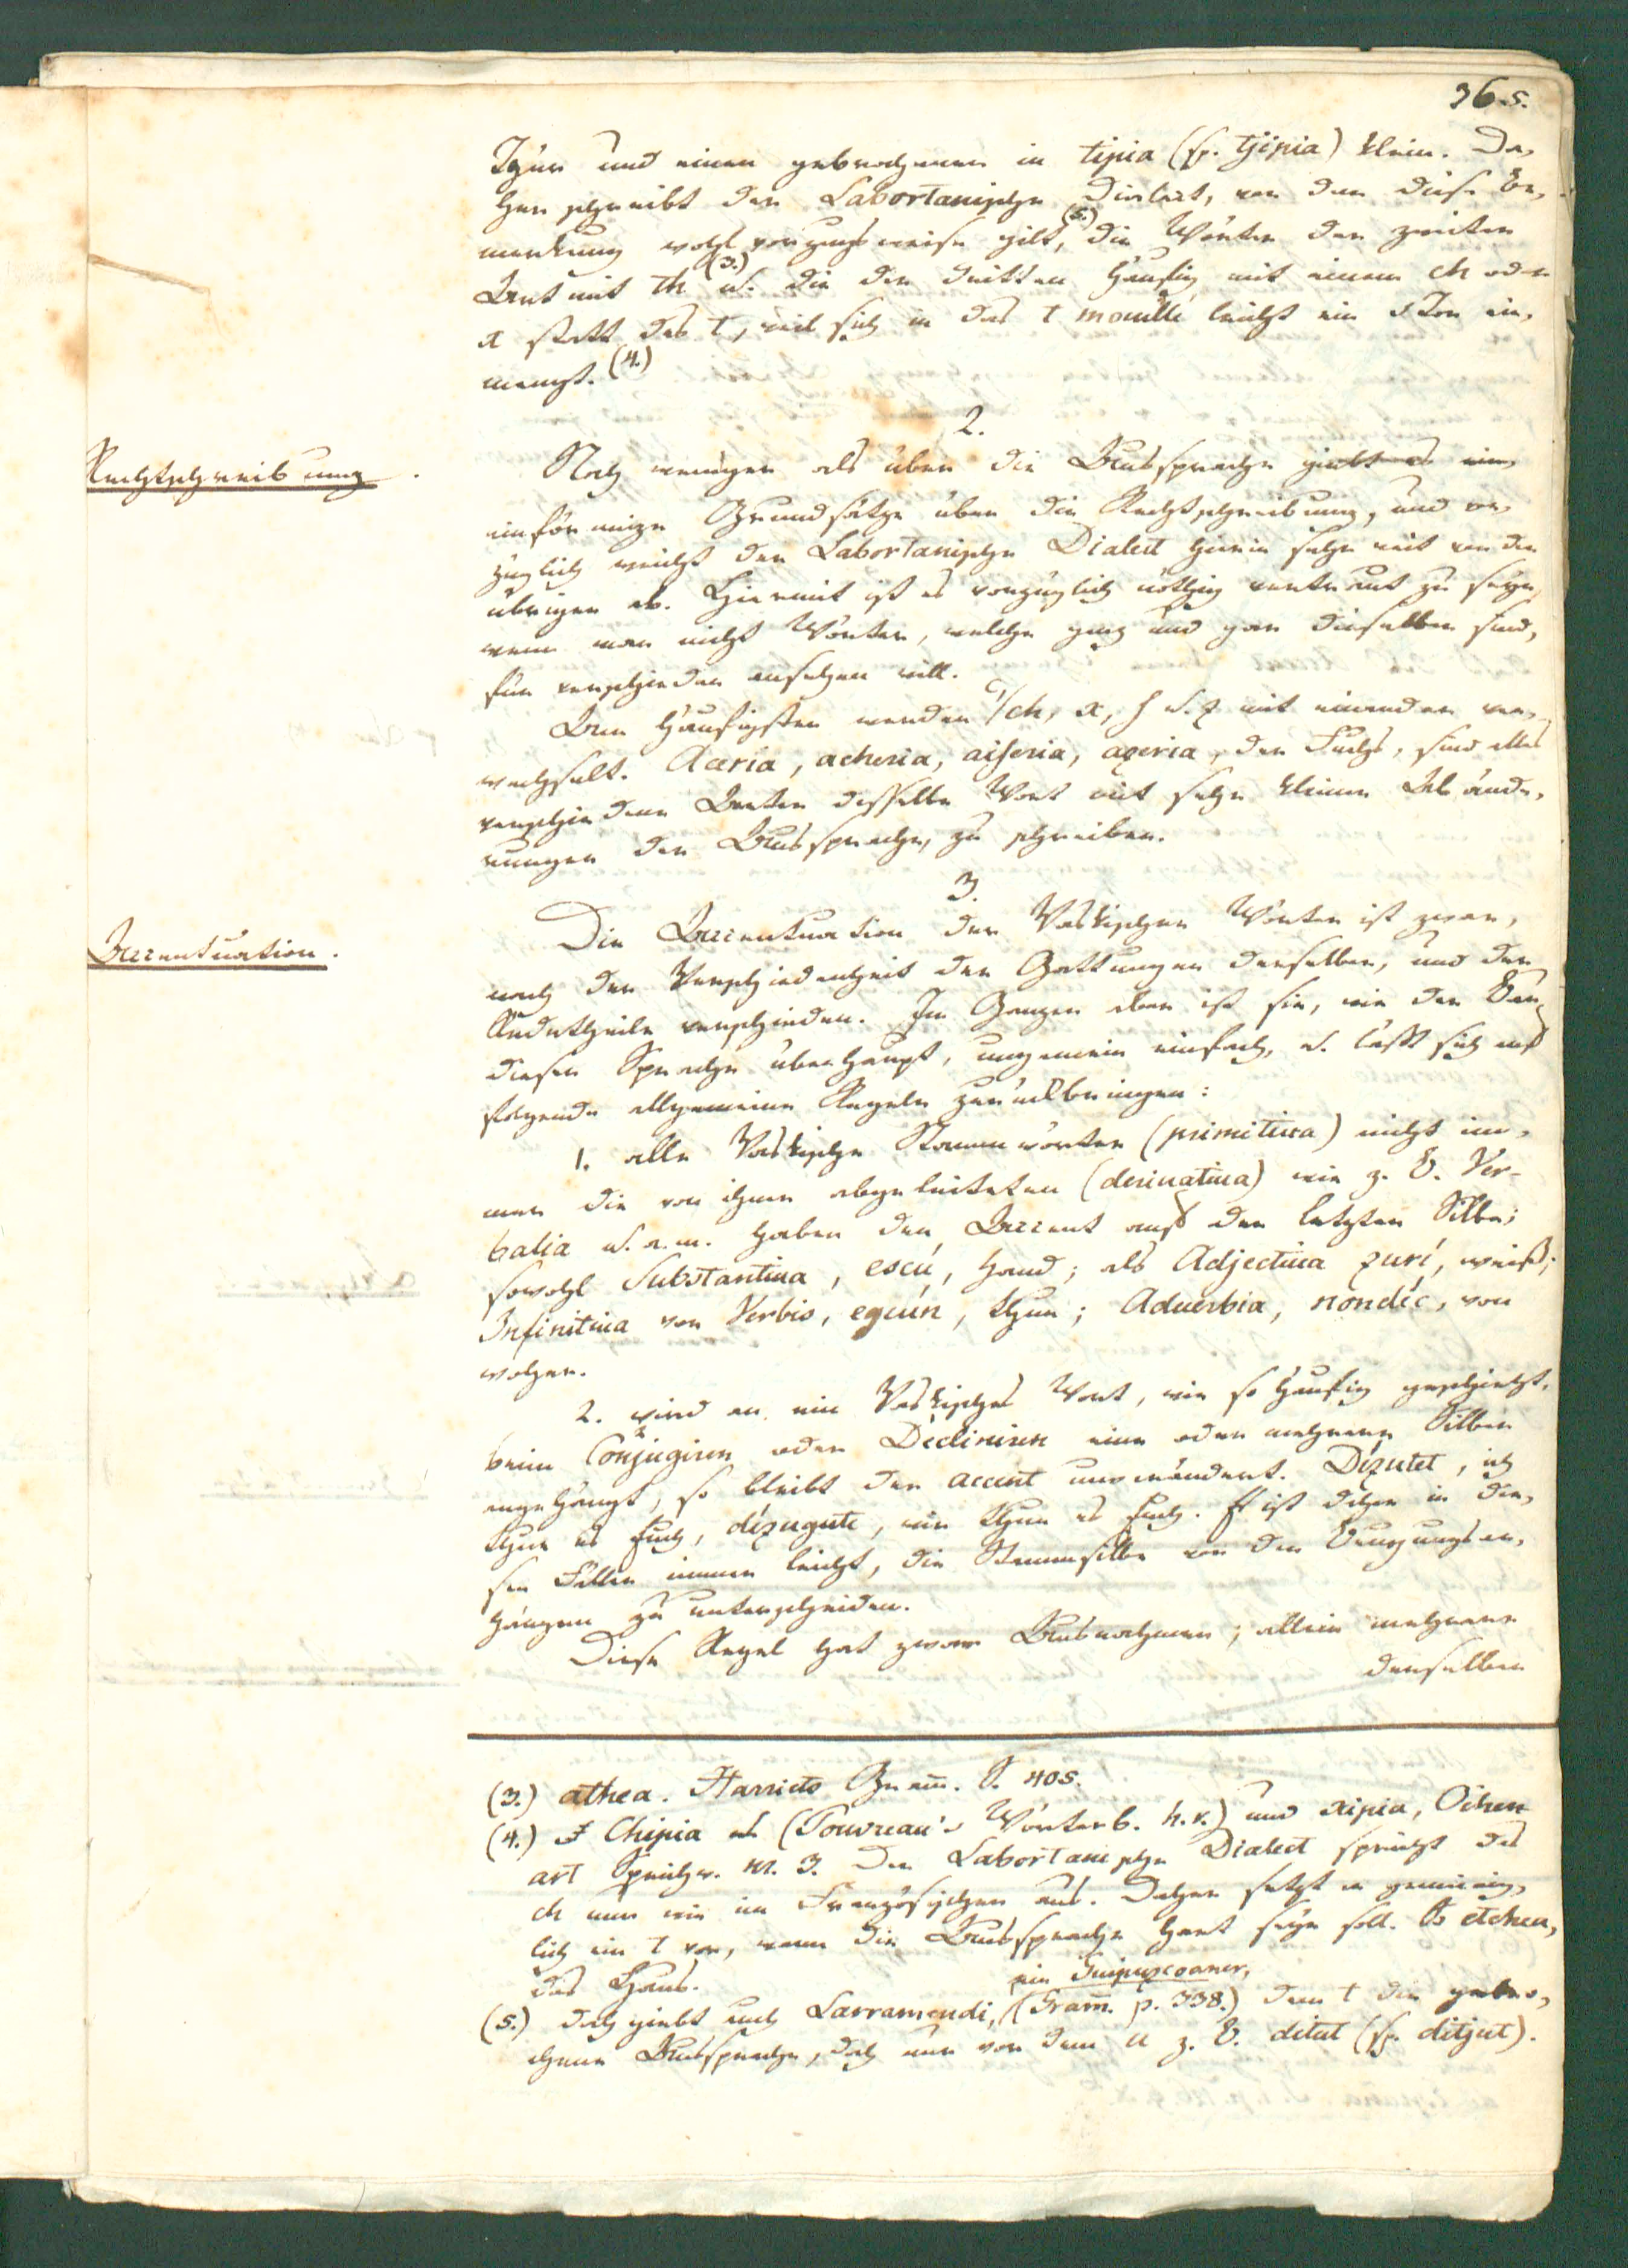 36.s.
Thür und einen gebrochenen in tipia (sp. tjipia) klein. Da-
her schreibt der Labortanische Dialect, von dem diese Be-
merkung wohl vorzugsweise gilt, (5.) die Wörter der zweiten
Art mit th (3.) u. die der dritten häufig mit einem ch oder
x statt des t, weil sich in das t mouillé leicht ein s Ton ein-
mengt. (4.)
2.
Rechtschreibung.
Noch weniger als über die Aussprache giebt es
einförmige Grundsätze über die Rechtschreibung, und vor-
züglich weicht der Labortanische Dialect hierin sehr weit von den
übrigen ab. Hiermit ist es vorzüglich nöthig vertraut zu seyn,
wenn man nicht Wörter, welche ganz und gar dieselben sind,
für verschieden ansehen will.
Am häufigsten werden c, ch, x, s u. z mit einander ver-
wechselt. Aceria, acheria, aiseria, azeria, der Fuchs, sind alles
verschiedene Arten dasselbe Wort mit sehr kleinen Abände-
rungen der Aussprache, zu schreiben.
3.
Accentuation.
Die Accentuation der Vaskischen Wörter ist zwar,
nach der Verschiedenheit der Gattungen derselben, und der
Redetheile verschieden. Im Ganzen aber ist sie, wie der Bau
dieser Sprache überhaupt, ungemein einfach, u. läßt sich auf
folgende allgemeine Regeln zurückbringen:
1. alle Vaskische Stammwörter (primitiua) nicht im-
mer die von ihnen abgeleiteten (deriuatiua) wie z. B. Ver-
balia u. a. m. haben den Accent auf der letzten Silbe;
sowohl Substantiua, escú, Hand; als Adjectiua zurí, weiß;
Infinitiua von Verbis, eguín, thun; Aduerbia, nondíc, von
woher.
2. wird an ein Vaskisches Wort, wie so häufig geschieht,
beim Conjugiren oder Decliniren eine oder mehrere Silben
angehängt, so bleibt der accent unverändert. Dízutet, ich
thue es Euch, dízugute, wir thun es Euch. Es ist daher in die-
sen Fällen immer leicht, die Stammsilbe von den Beugungsan-
hängen zu unterscheiden.
Diese Regel hat zwar Ausnahmen; allein mehrere
derselben
(3.) athea. Harriets Gram̄. S. 405.
(4.) Chipia (Pouvreau's Wörterb. h. v.) und xipia, Oihen-
art Sprichw. nr. 3. Der Labortanische Dialect spricht das
ch nun wie im Französischen aus. Daher setzt er gemeinig-
lich ein t vor, wenn die Aussprache hart seyn soll. So etchea,
das Haus.
(5.) doch giebt auch Larramendi, ein Guipuzcoaner, (Gram̄. p. 338.) dem t die gebro-
chene Aussprache, doch nur vor dem u z. B. ditut (sp. ditjut).